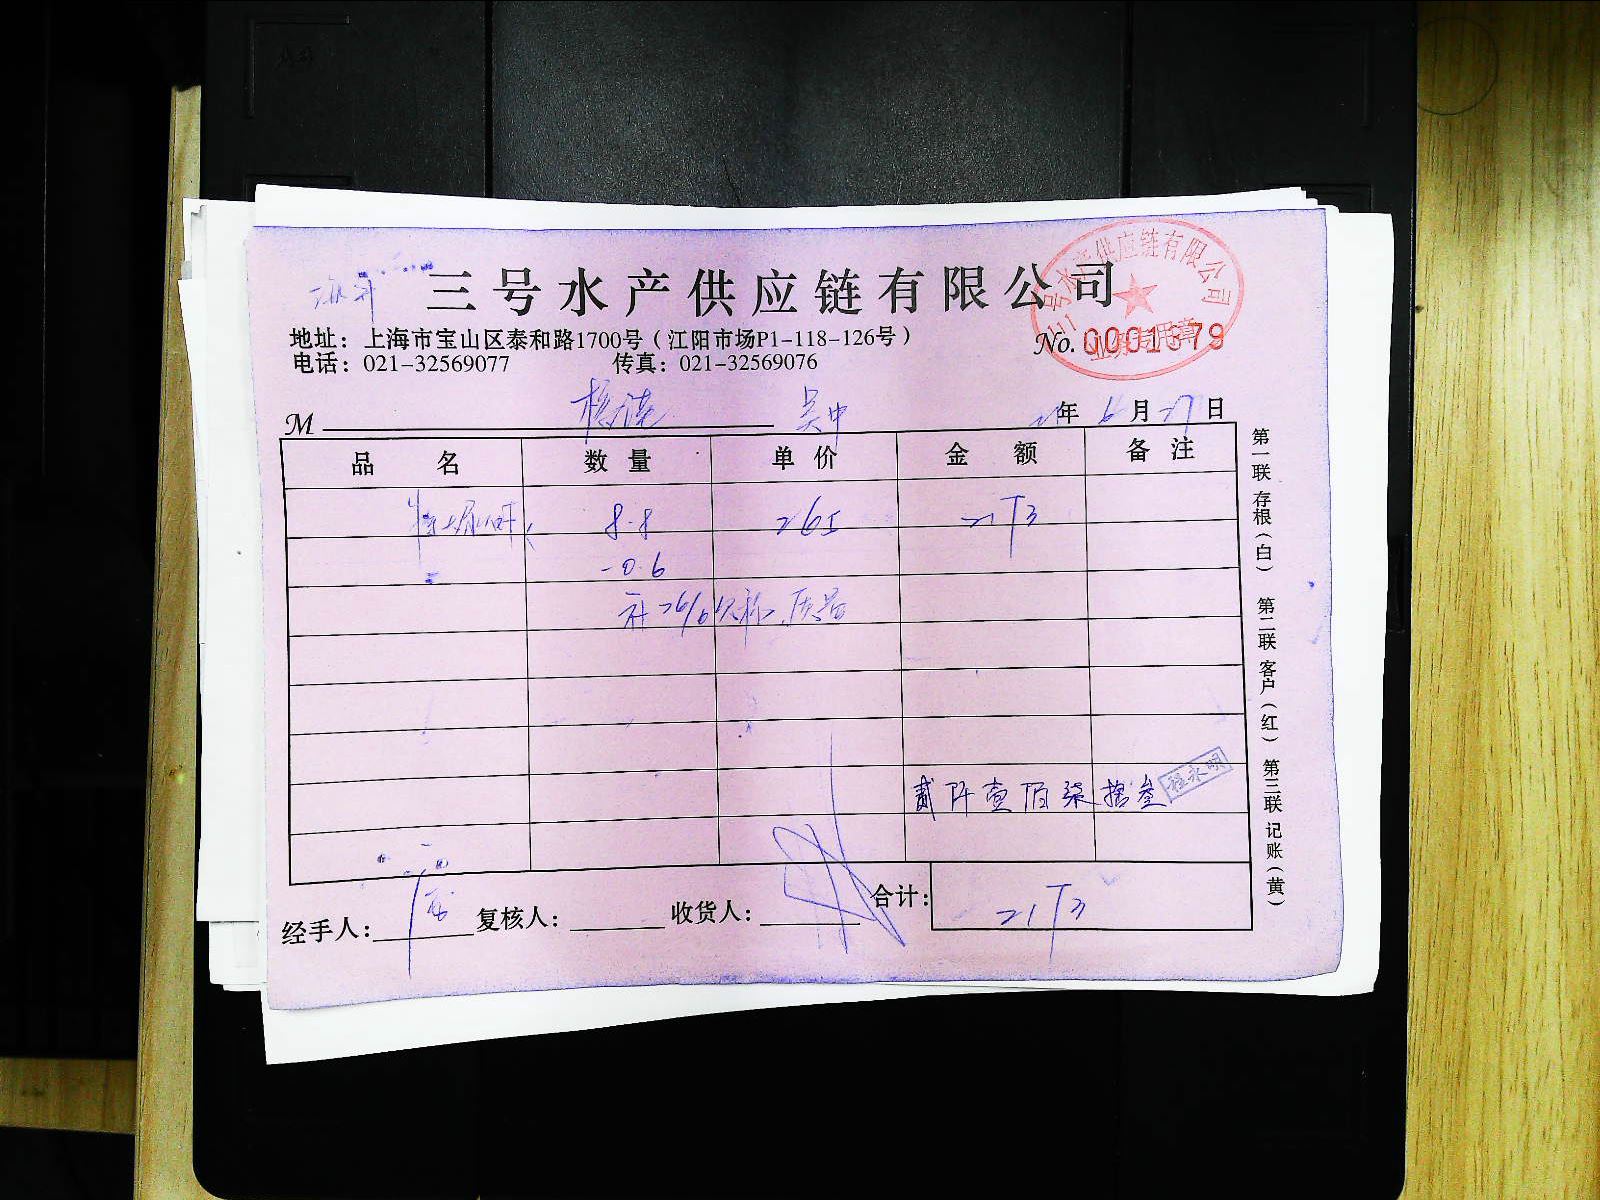 三号水产供应链有限公司
三号水产供应链有限公司
业务专用章
地址：上海市宝山区泰和路1700号（江阳市场P1-118-126号）
No. 0001679
电话：021-32569077 传真：021-32569076
M 吴中 21年 6月 27日
品 名 数 量 单 价 金 额 备 注
8.8 265 2173
-0.6
贰仟壹佰柒拾叁 程永明
经手人： 复核人： 收货人： 合计： 2173
第一联 存根（白） 第二联 客户（红） 第三联 记账（黄）